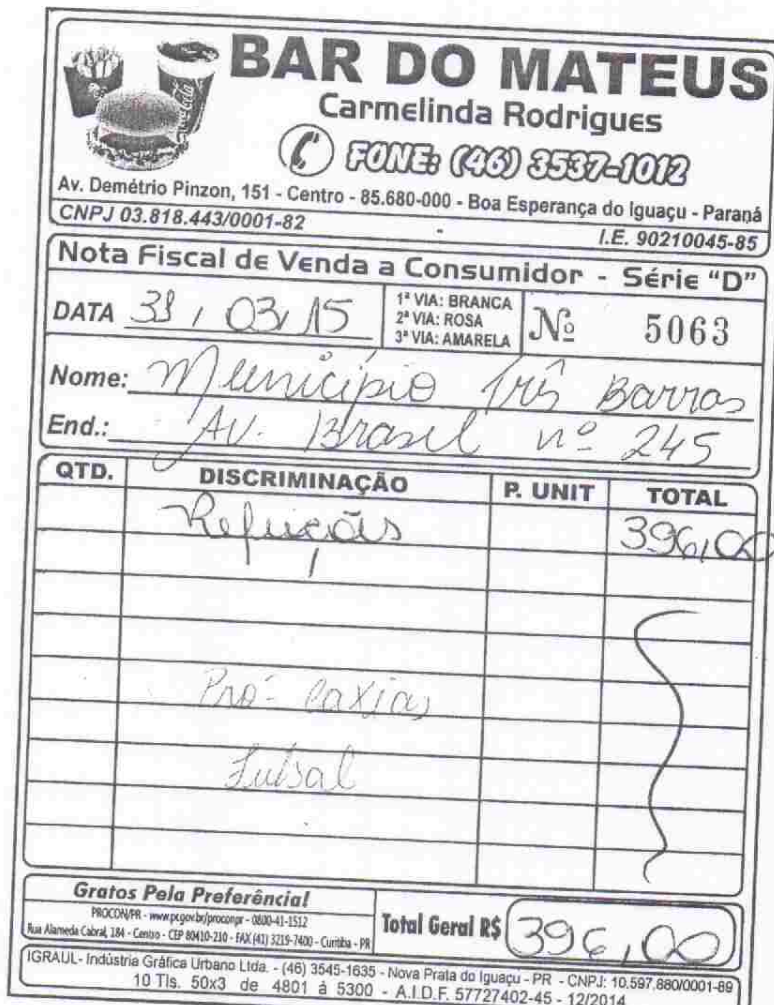 BAR DO MATEUS
Carmelinda Rodrigues
FONE: (46) 3537-1012
Av. Demétrio Pinzon, 151 - Centro - 85.680-000 - Boa Esperança do Iguaçu - Paraná
CNPJ 03.818.443/0001-82
I.E. 90210045-85
Nota Fiscal de Venda a Consumidor - Série "D"
DATA 31 / 03 / 15
1ª VIA: BRANCA
2ª VIA: ROSA
3ª VIA: AMARELA
Nº 5063
Nome: Município Três Barras
End.: AV. Brasil nº 245
QTD. DISCRIMINAÇÃO P. UNIT TOTAL
Refeições 396,00
Pró-Caxias
Futsal
Gratos Pela Preferêncial
PROCON/PR - www.pr.gov.br/proconpr - 0800-41-1512
Rua Alameda Cabral, 184 - Centro - CEP 80410-210 - FAX (41) 3219-7400 - Curitiba - PR
Total Geral R$ 396,00
IGRAUL- Indústria Gráfica Urbano Ltda. - (46) 3545-1635 - Nova Prata do Iguaçu - PR - CNPJ: 10.597.880/0001-89
10 Tls. 50x3 de 4801 á 5300 - A.I.D.F. 57727402-45 - 12/2014